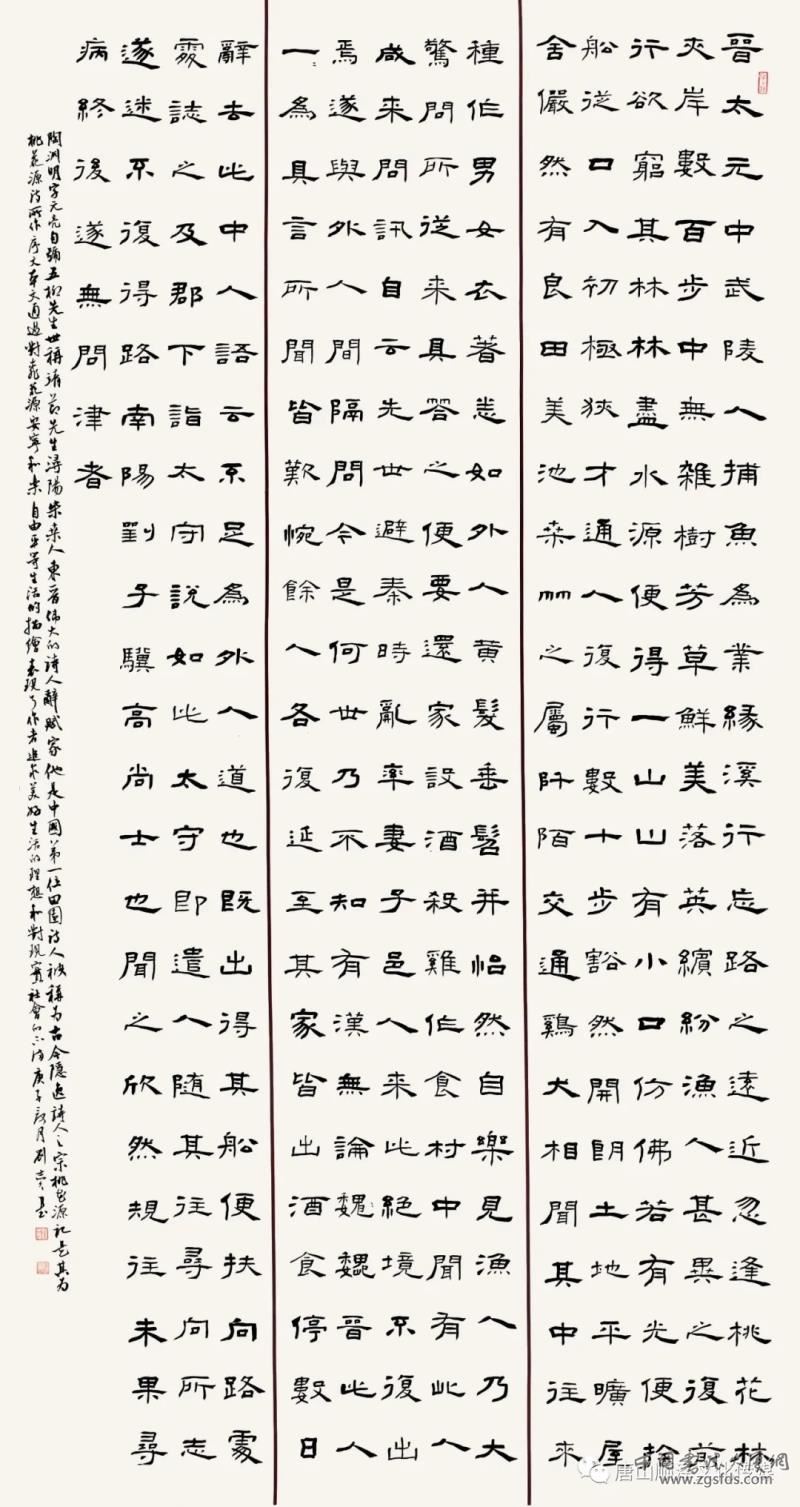 晉太元中武陵人捕魚為業緣溪行忘路之遠近忽逢桃花林
夾岸數百步中無雜樹芳草鮮美落英繽紛漁人甚異之復前
行欲窮其林林盡水源便得一山山有小口仿佛若有光便捨
船從口入初極狹才通人復行數十步豁然開朗土地平曠屋
舍儼然有良田美池桑竹之屬阡陌交通鷄犬相聞其中往來
種作男女衣著悉如外人黃髮垂髫并怡然自樂見漁人乃大
驚問所從來具答之便要還家設酒殺雞作食村中聞有此人
咸來問訊自云先世避秦時亂率妻子邑人來此絕境不復出
焉遂與外人間隔問今是何世乃不知有漢無論魏魏晉此人
一〻為具言所聞皆歎惋餘人各復延至其家皆出酒食停數日
辭去此中人語云不足為外人道也既出得其船便扶向路處
處誌之及郡下詣太守說如此太守即遣人随其往尋向所志
遂迷不復得路南陽劉子驥高尚士也聞之欣然規往未果尋
病終後遂無問津者
陶淵明字元亮自號五柳先生世稱靖節先生潯陽柴桑人東晉偉大的詩人辭賦家他是中國第一位田園詩人被稱為古今隱逸詩人之宗桃花源記是其為
桃花源詩所作序文本文通過對桃花源安寧和樂自由平等生活的描繪表現了作者追求美好生活的理想和對現實社會的不滿庚子秋月劉書
www.zgsfds.com